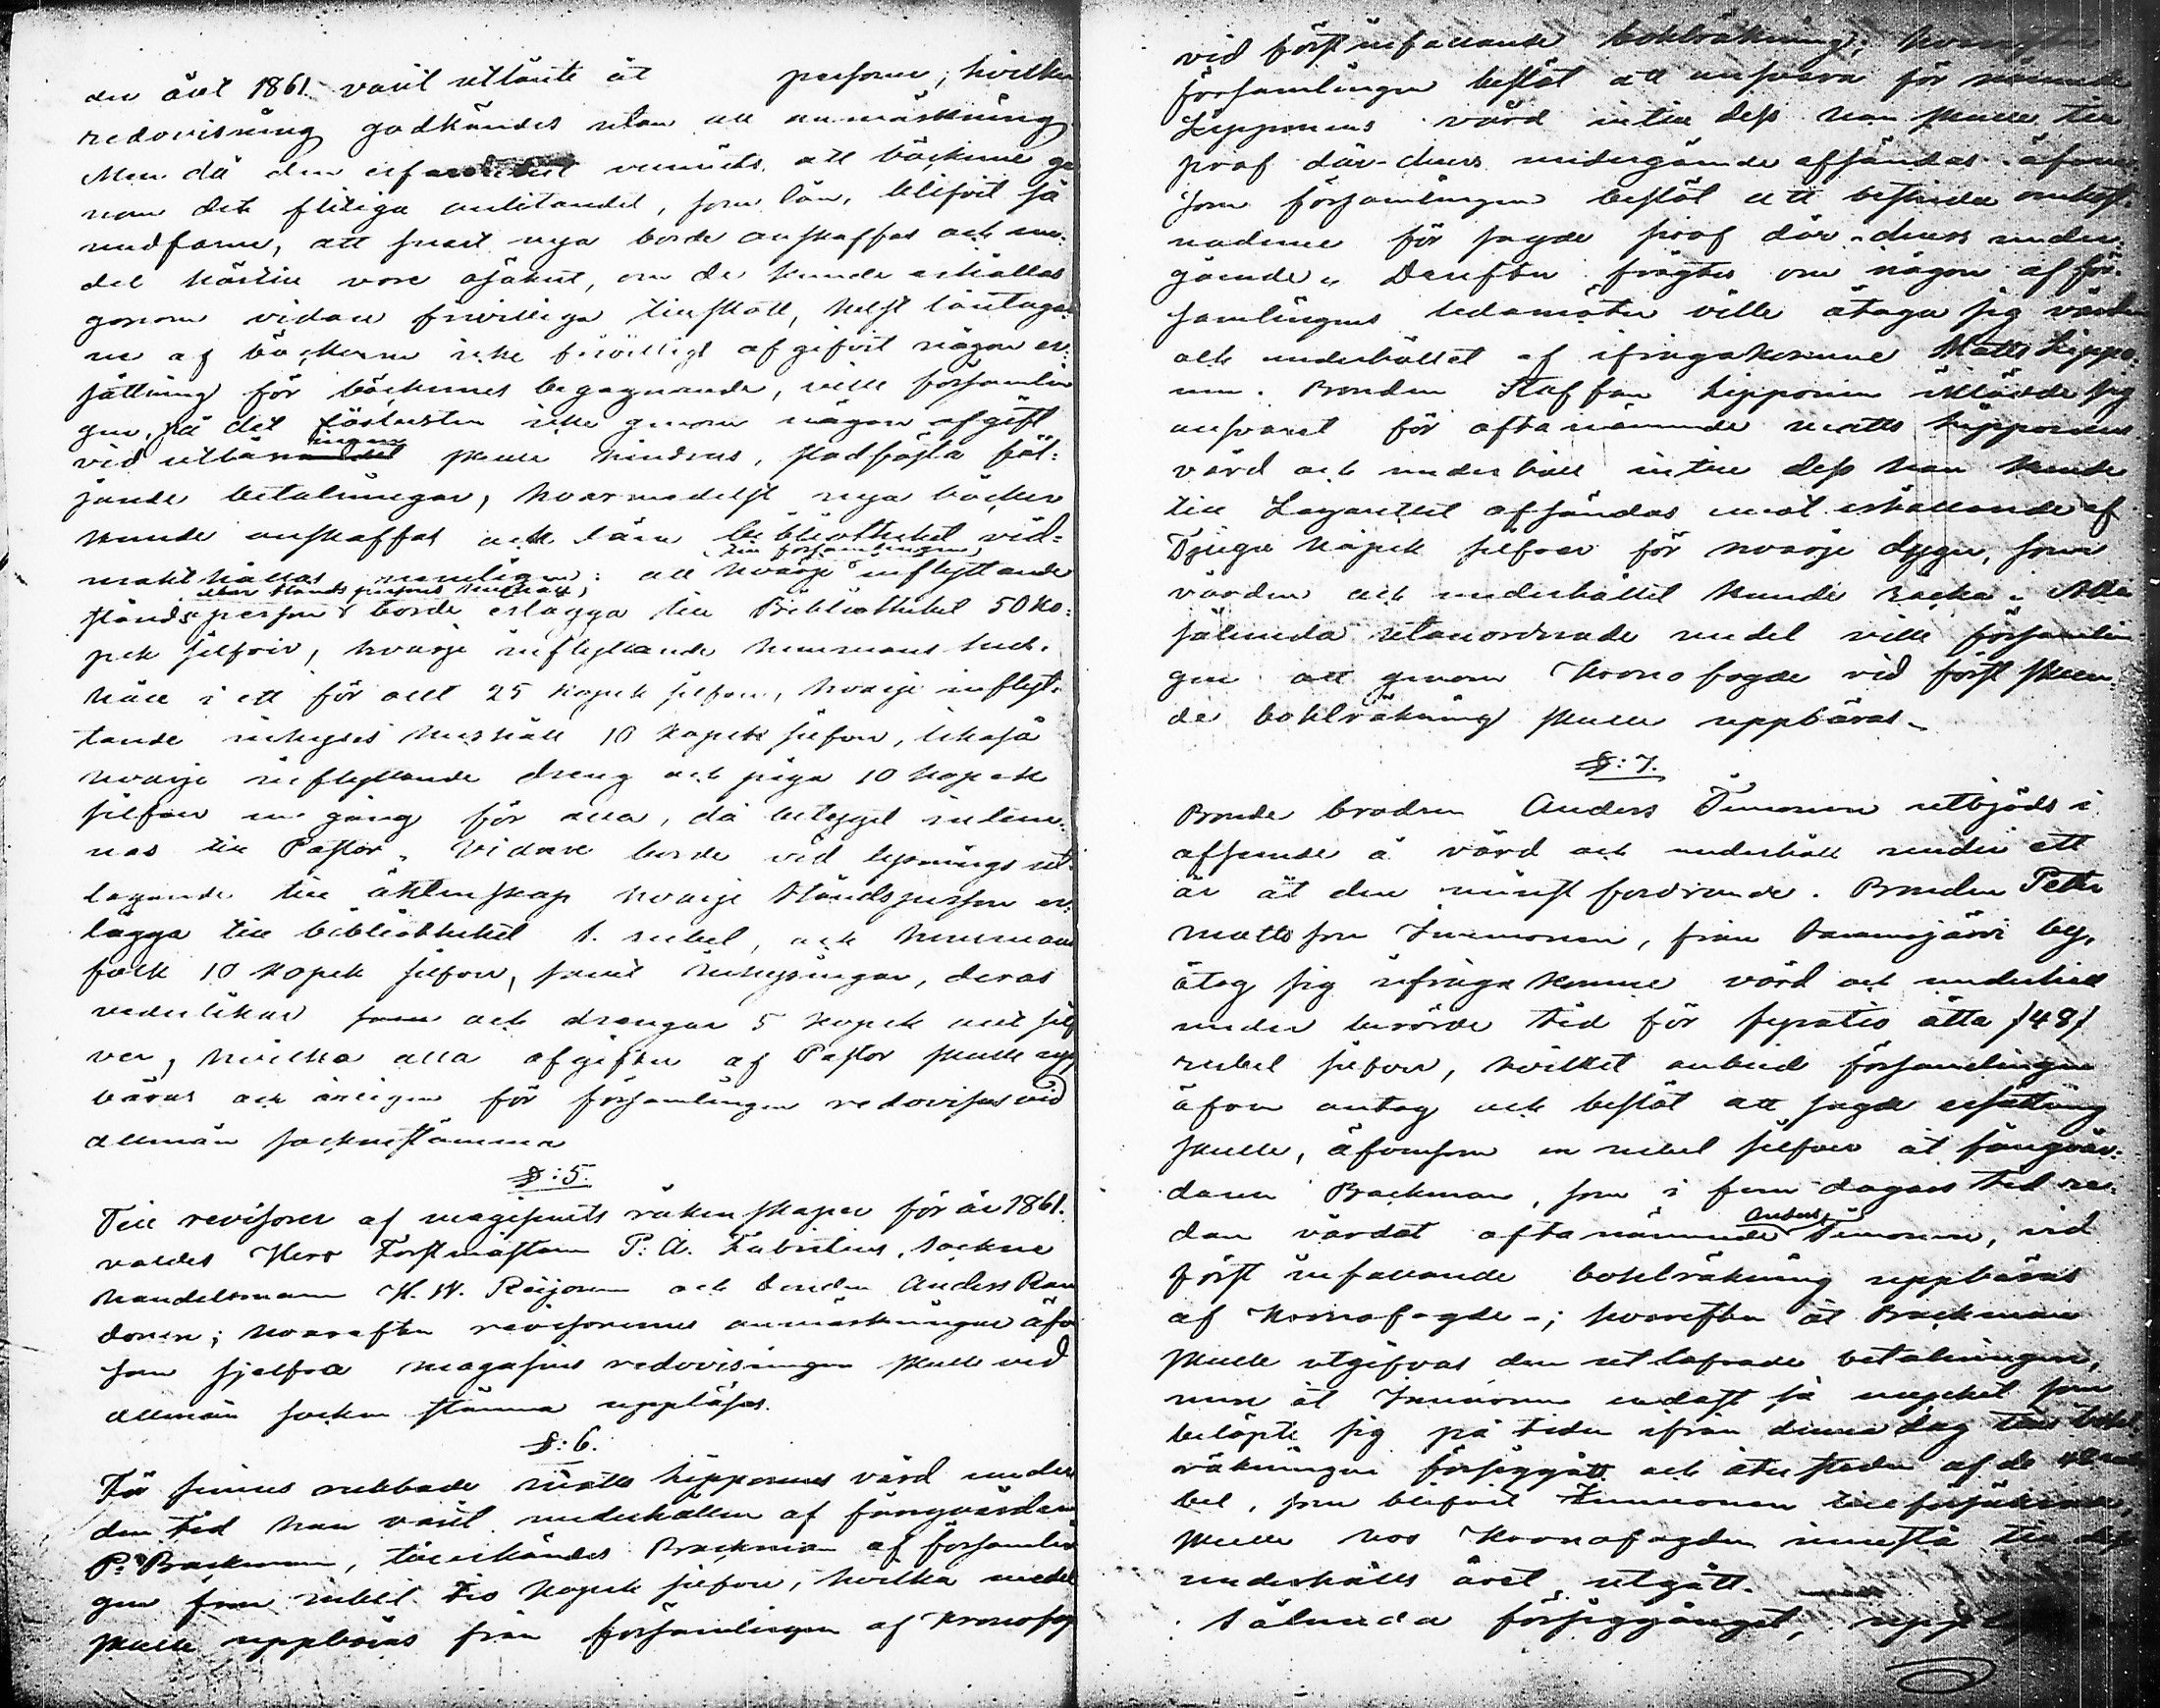 den året 1861. varit utlånte åt personer; hvilken
redovisning godkändes utan all anmärkning
Men då den erfarenhet vunnits, att böckerne ge
nom det flitiga anlitandet, som lån, blifvit så
medfarne, att snart nya borde anskaffas och me-
del härtill vore osäkert, om de kunde erhållas
genom vidare frivilliga tillskott, helst låntagar
ne af böckerne icke frivilligt afgifvit någon er-
sättning för böckernes begagnande, ville församlin
gen, på det läslusten icke genom någon afgift
vid utlåningen skulle hindras, stadfästa föl-
jande betalningar, hvarmedelst nya böcker
kunde anskaffas och låne bibliotheket vid-
makt hållas nemligen: att hvarje till församlingen inflyttande
ståndsperson eller ståndspersons hushåll borde erlägga till Bibliotheket 50 Ko-
pek silfver, hvarje inflyttande hemmans hus-
håll i ett för allt 25 kopek silfver, hvarje inflyt-
tande inhyses hushåll 10 kopek silfver, likaså
hvarje inflyttande dreng och piga 10 kopek
silfver en gång för alla, då betyget inlem-
nas till Pastor. Vidare borde vid lysnings ut-
tagande till äktenskap hvarje Ståndsperson er-
lägga till bibliotheket 1. rubel, och hemmans
folk 10 kopek silfver, samt inhysingar, deras
vederlikar och drengar 5 kopek allt silf
ver, hvilka alla afgifter af Pastor skulle upp
bäras och årligen för församlingen redovisas vid
allmän sockenstämma
§: 5.
Till revisorer af magasinets räkenskaper för år 1861.
valdes Herr Forstmästaren P: A. Fabritius, sockne
handelsman H. W. Reijonen och bonden Anders Ran
donen; hvarefter revisorernes anmärkningar äfven
som sjelfva magasins redovisningen skulle vid
allmän socken stämma uppläsas.
§: 6.
För sinnes rubbade Matts Lipponens vård under
den tid han varit underhållen af fångvårdaren
P. Backman, tillerkändes Backman af församlin
gen fem rubel tio kopek silfver, hvilka medel
skulle uppbäras från församlingen af Kronofog
vid först infallande bohlräkning; hvarefter
församlingen beslöt att ansvara för nämnde
Lipponens vård intill dess han skulle till
prof dårchurs undergående afsändas äfven
som församlingen beslöt att bestrida omkost-
naderne för sagde prof dår-churs under-
gående. Derefter frågtes om någon af för-
samlingens ledamöter ville åtaga sig vården
och underhållet af ifrågakomne Matts Lippo-
nen. Bonden Staffan Lipponen iklädde sig
ansvaret för oftanämnde Matts Lipponens
vård och underhåll intill dess han kunde
till Lazarettet afsändas emot erhållande af
Tjugu kopek silfver för hvarje dygn, som
vården och underhållet kunde räcka. Alla
sålunda utanordnade medel ville församlin
gen att genom Kronofogde vid först skeen-
de bohlräkning skulle uppbäras.
§: 7.
Bonde brodren Anders Timonen utbjöds i
afseende å vård och underhåll under ett
år åt den minst fordrande. Bonden Petter
Mattsson Immonen, från by,
åtog sig ifråga komne vård och underhåll
under berörde tid för fyratio åtta /48/
rubel silfver, hvilket anbud församlingen
äfven antog och beslöt att sagde ersättning
skulle, äfvensom en rubel silfver åt fångvår-
daren Backman, som i fem dagars tid re-
dan vårdat oftanämnde Anders Timonen, vid
först infallande bohlräkning uppbäras
af Kronofogde; hvarefter åt Backman
skulle utgifvas den utlofvade betalningen,
men åt Immonen endast så mycket som
belöpte sig på tiden ifrån denna dag till bohl
räkningen försiggått och återstoden af de 48 ru
bel, som blifvit Immonen tillförsäkrade,
skulle hos Kronofogden innestå till dess
underhålls året utgått.
Sålunda försiggånget,